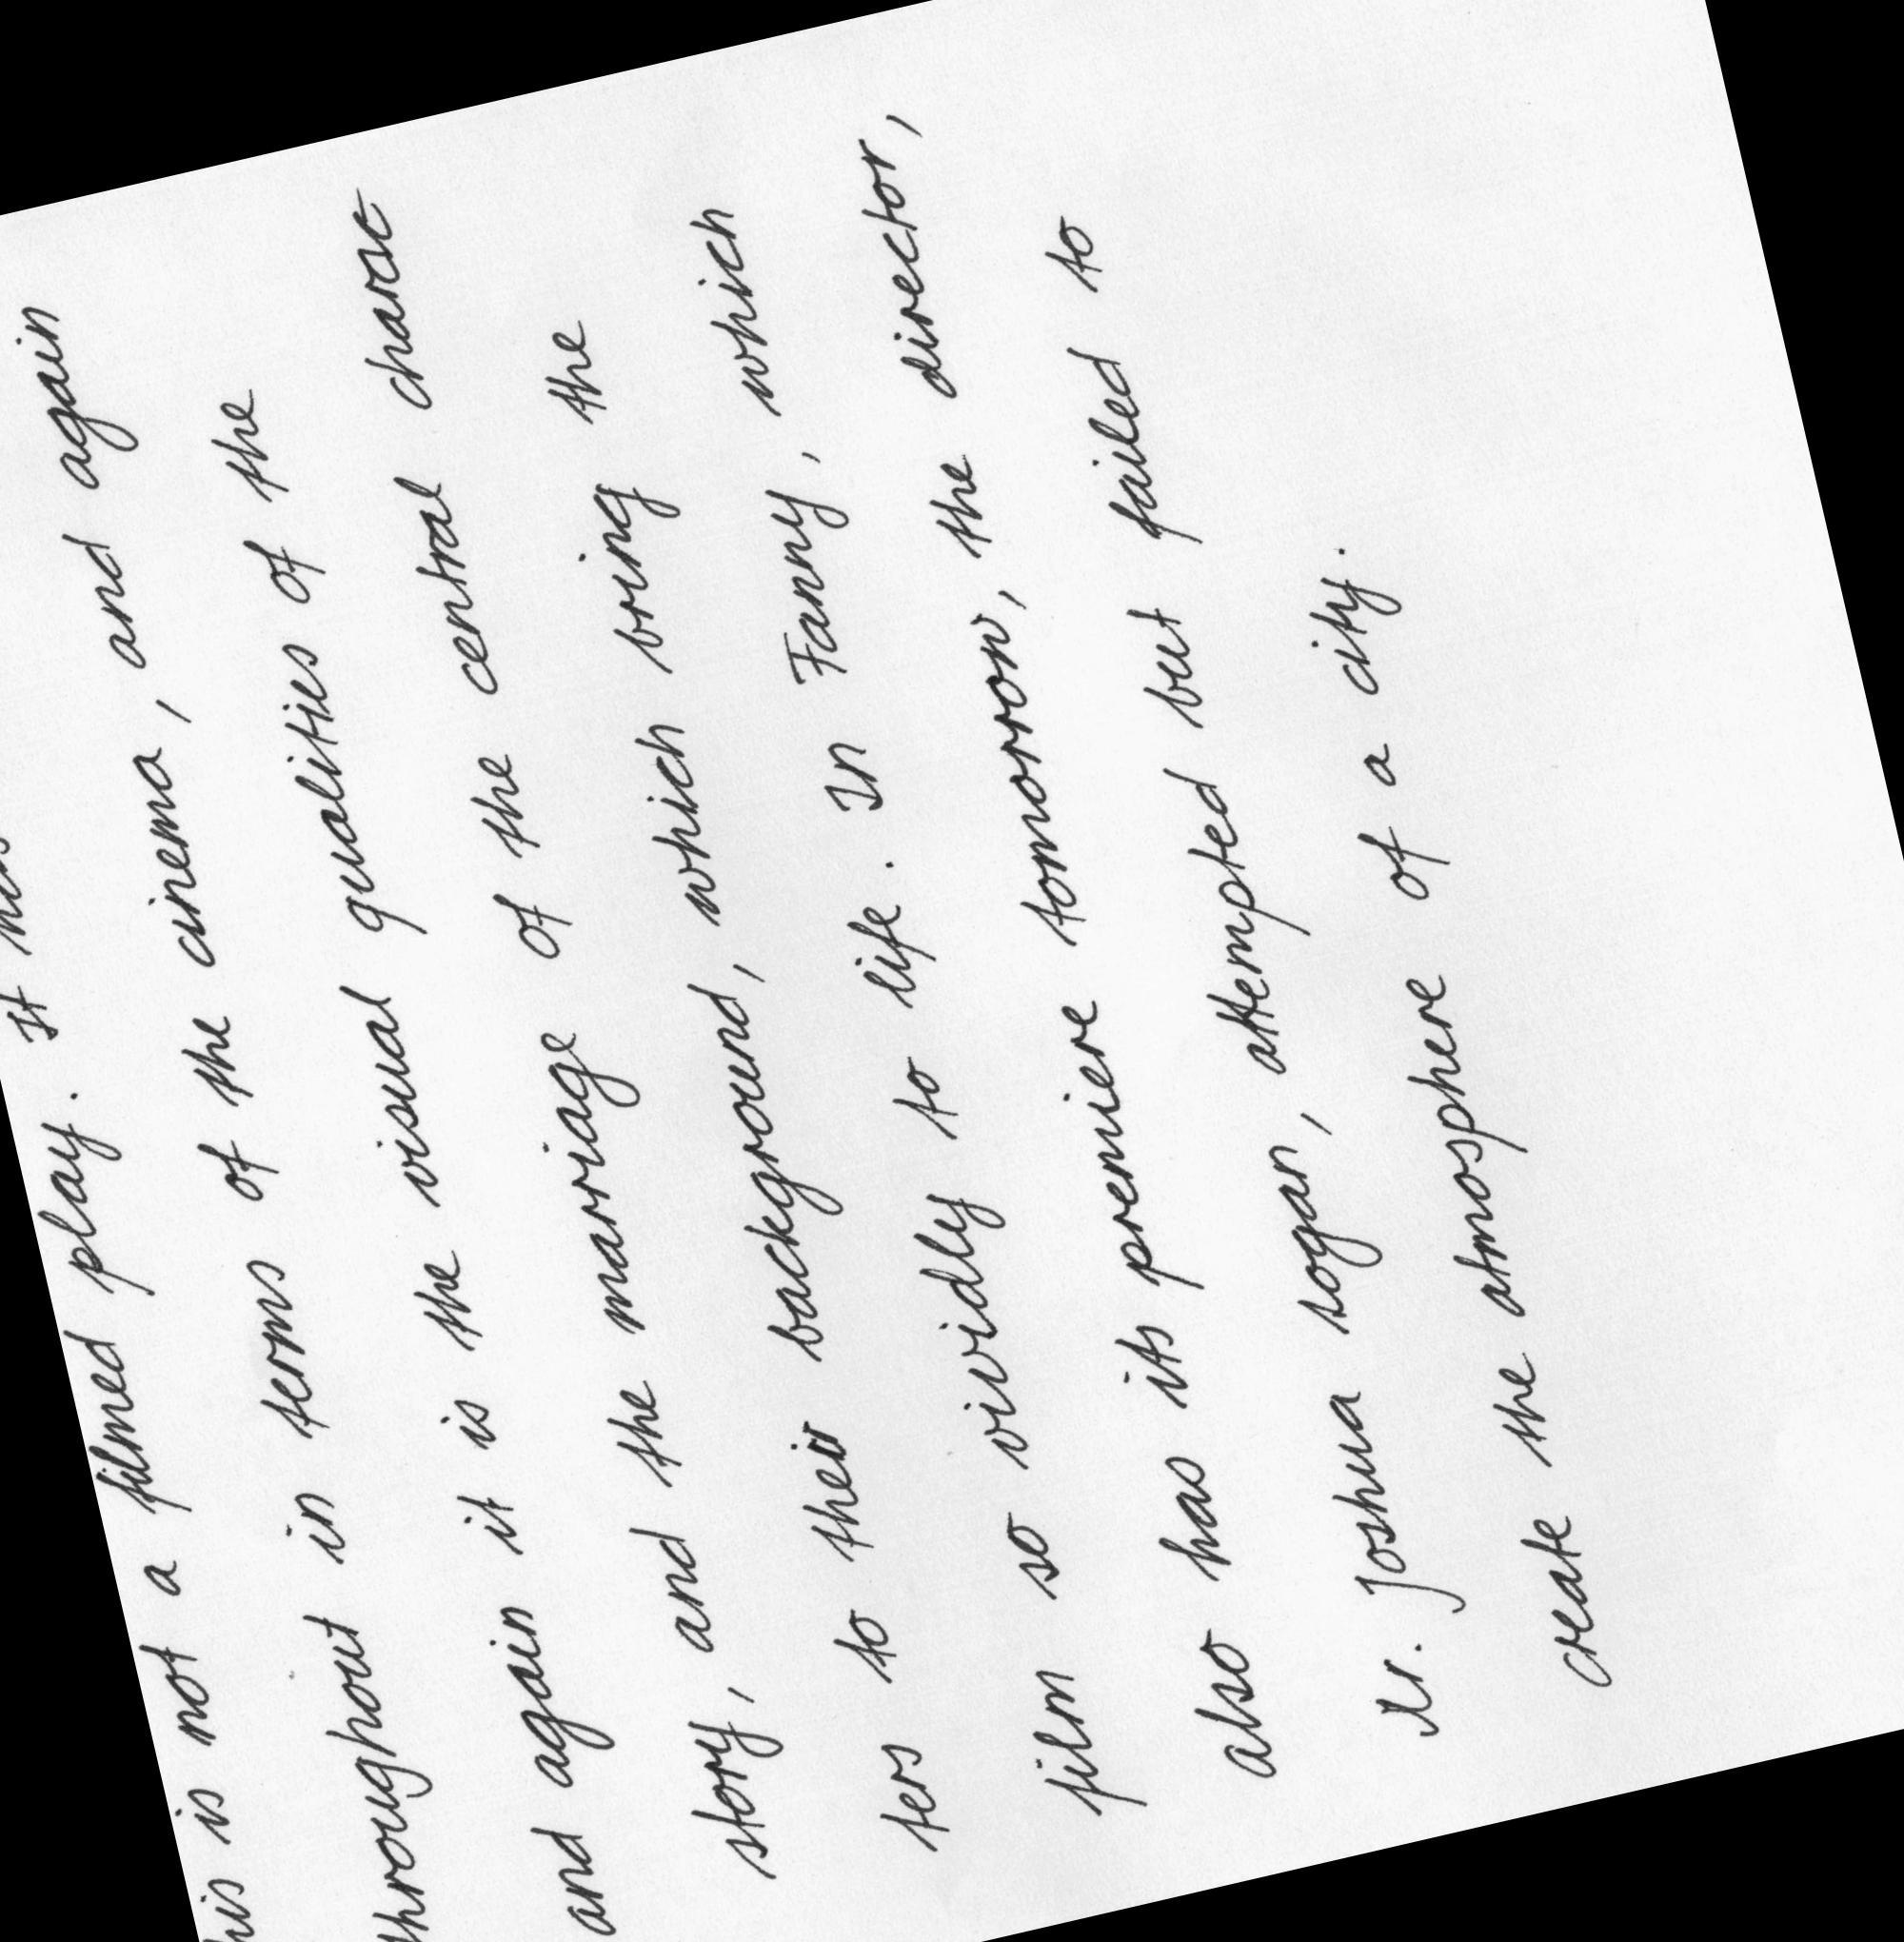 his is not a filmed play. It
throughout in terms of the cinema, and again
and again it is the visual qualities of the
story, and the marriage of the central charac
ters to their background, which bring the
film so vividly to life. In Fanny, which
also has its premiere tomorrow, the director,
Mr. Joshua Logan, attempted but failed to
create the atmosphere of a city.